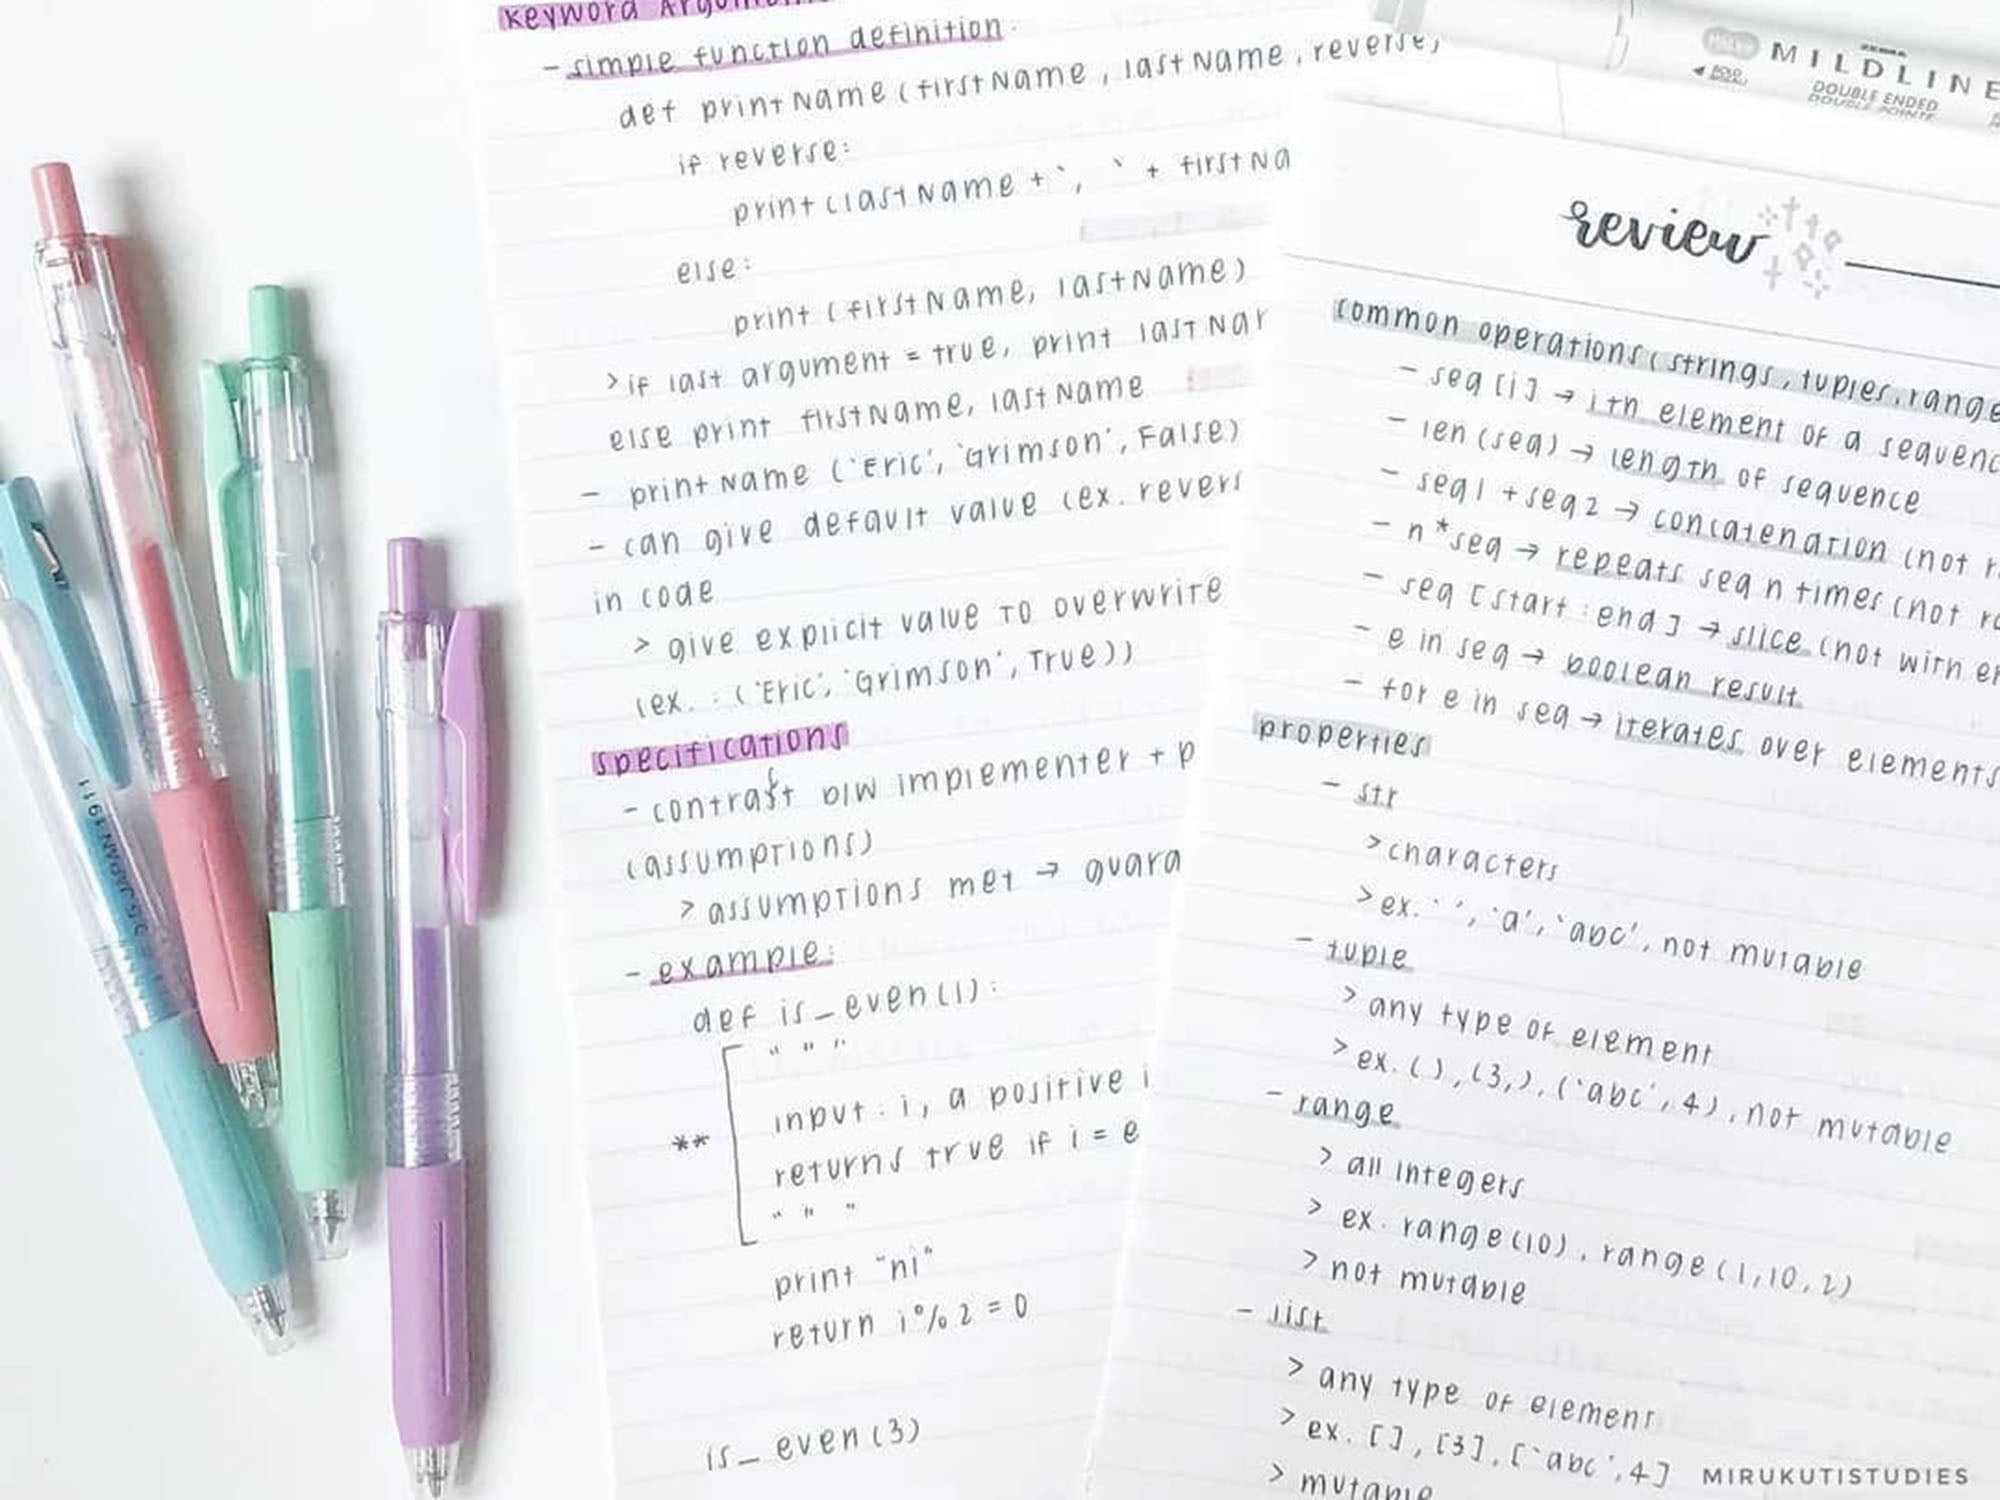 keyword
- simple function definition:
def printName (firstName, lastName, reverse)
if reverse:
print (lastName + `, ` + firstNa
else:
print (firstName, lastName)
> if last argument = true, print lastNar
else print firstName, lastName
- printName ('Eric', 'Grimson', False)
- can give default value (ex. revers
in code
> give explicit value to overwrite
(ex. : ('Eric', 'Grimson', True))
specifications
- contrast b/w implementer + p
(assumptions)
> assumptions met → guara
- example:
def is_even(i):
" " "
input: i, a positive i
** returns true if i = e
" " "
print "hi"
return i % 2 = 0
is_even(3)
MILDLINE
ZEBRA
DOUBLE ENDED
DOUBLE POINTE
review
common operations (strings, tuples, range
- seq [i] → ith element of a sequenc
- len (seq) → length of sequence
- seq1 + seq2 → concatenation (not r
- n * seq → repeats seq n times (not ra
- seq [start : end] → slice (not with en
- e in seq → boolean result
- for e in seq → iterates over elements
properties
- str
> characters
> ex. ' ', 'a', 'abc', not mutable
- tuple
> any type of element
> ex. ( ), (3,), ('abc', 4), not mutable
- range
> all integers
> ex. range (10), range (1, 10, 2)
> not mutable
- list
> any type of element
> ex. [], [3], ['abc', 4]
> mutable
MIRUKUTISTUDIES
0.5 JAPAN 1911